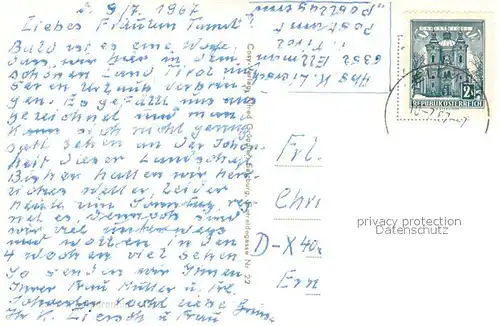 d. 9/7. 1967
Liebes Fräulein
Bald ist es eine Woche,
das wir hier in dem
schönen Land Tirol un-
seren Urlaub verbrin-
gen. Es gefällt uns aus
gezeichnet und man
kann sich nicht genug
satt sehen an der Schön-
heit dieser Landschaft.
Bisher hatten wir herr-
liches Wetter, leider
heute am Sonntag, reg-
net es, dennoch sind
wir viel unterwegs
und wollen in den
4 Wochen viel sehen
So senden wir Ihnen
Ihrer Frau Mutter u. Frl.
Schwester recht liebe Grüße
Ihr K. Ziersch u. Frau
Abs. K. Ziersch
6352 Ellmau
i. Tirol
Postamt
"Postlagernd"
REPUBLIK ÖSTERREICH
Frl.
Chri
D-X 40
Ern
privacy protection
Datenschutz